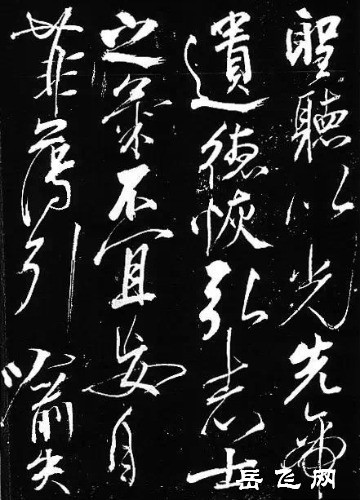 聖聽以光先帝
遺德恢弘志士
之氣不宜妄自
菲薄引喻失
岳飞网